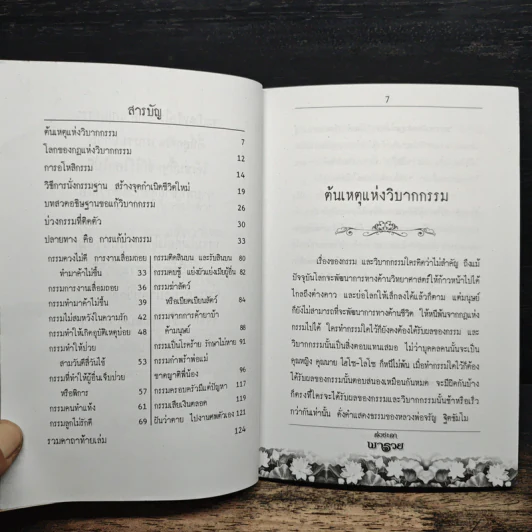 สารบัญ
ต้นเหตุแห่งวิบากกรรม 7
โลกของกฎแห่งวิบากกรรม 12
การอโหสิกรรม 14
วิธีการนั่งกรรมฐาน สร้างจุดกำเนิดชีวิตใหม่ 19
บทสวดอธิษฐานขอแก้วิบากกรรม 26
บ่วงกรรมที่ติดตัว 30
ปลายทาง คือ การแก้บ่วงกรรม 33
กรรมดวงไม่ดี การงานเสื่อมถอย
ทำมาค้าไม่ขึ้น 33
กรรมการงานเสื่อมถอย 36
กรรมทำมาค้าไม่ขึ้น 39
กรรมไม่สมหวังในความรัก 42
กรรมทำให้เกิดอุบัติเหตุบ่อย 48
กรรมทำให้ป่วย
สามวันดีสี่วันไข้ 53
กรรมที่ทำให้ผู้อื่นเจ็บป่วย
หรือพิการ 57
กรรมคนทำแท้ง 61
กรรมลูกไม่รักดี 69
กรรมติดสินบน และรับสินบน 80
กรรมคบชู้ แย่งผัวแย่งเมียผู้อื่น 82
กรรมฆ่าสัตว์
หรือเบียดเบียนสัตว์ 84
กรรมจากการค้ายาบ้า
ค้ามนุษย์ 88
กรรมเป็นโรคร้าย รักษาไม่หาย 91
กรรมกำพร้าพ่อแม่
ขาดญาติพี่น้อง 96
กรรมครอบครัวมีแต่ปัญหา 111
กรรมเสียเงินตลอด 117
ฝันว่าตาย ไปงานศพตัวเอง 121
รวมคาถาท้ายเล่ม 124
7
ต้นเหตุแห่งวิบากกรรม
เรื่องของกรรม และวิบากกรรมใครคิดว่าไม่สำคัญ ถึงแม้
ปัจจุบันโลกจะพัฒนาการทางด้านวิทยาศาสตร์ให้ก้าวหน้าไปได้
ไกลถึงต่างดาว และย่อโลกให้เล็กลงได้แล้วก็ตาม แต่มนุษย์
ก็ยังไม่สามารถที่จะพัฒนาการทางด้านชีวิต ให้หนีพ้นจากกฎแห่ง
กรรมไปได้ ใครทำกรรมใดไว้ก็ยังคงต้องได้รับผลของกรรม และ
วิบากกรรมนั้นเป็นสิ่งตอบแทนเสมอ ไม่ว่าบุคคลคนนั้นจะเป็น
คุณหญิง คุณนาย ไฮโซ-โลโซ ก็หนีไม่พ้น เมื่อทำกรรมใดไว้ก็ต้อง
ได้รับผลของกรรมนั้นตอบสนองเหมือนกันหมด จะมีผิดกันบ้าง
ก็ตรงที่ใครจะได้รับผลของกรรมและวิบากกรรมนั้นช้าหรือเร็ว
กว่ากันเท่านั้น ดังคำแสดงธรรมของหลวงพ่อจรัญ ฐิตธัมโม
พารวย